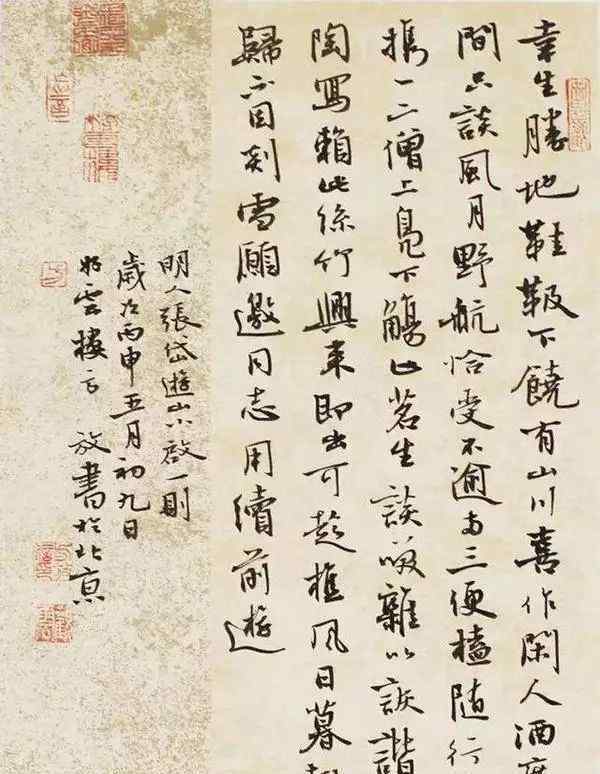 幸生勝地鞋靸下饒有山川喜作閑人酒席
間只談風月野航恰受不逾兩三便榼隨行
攜一二僧上鳧下觴止茗生談笑雜以詼諧
陶寫賴此絲竹興來即出可趁樵風日暮
歸不因剡雪願邀同志用續前遊
明人張岱遊山小啟一則
歲次丙申五月初九日
雲樓方放書於北京